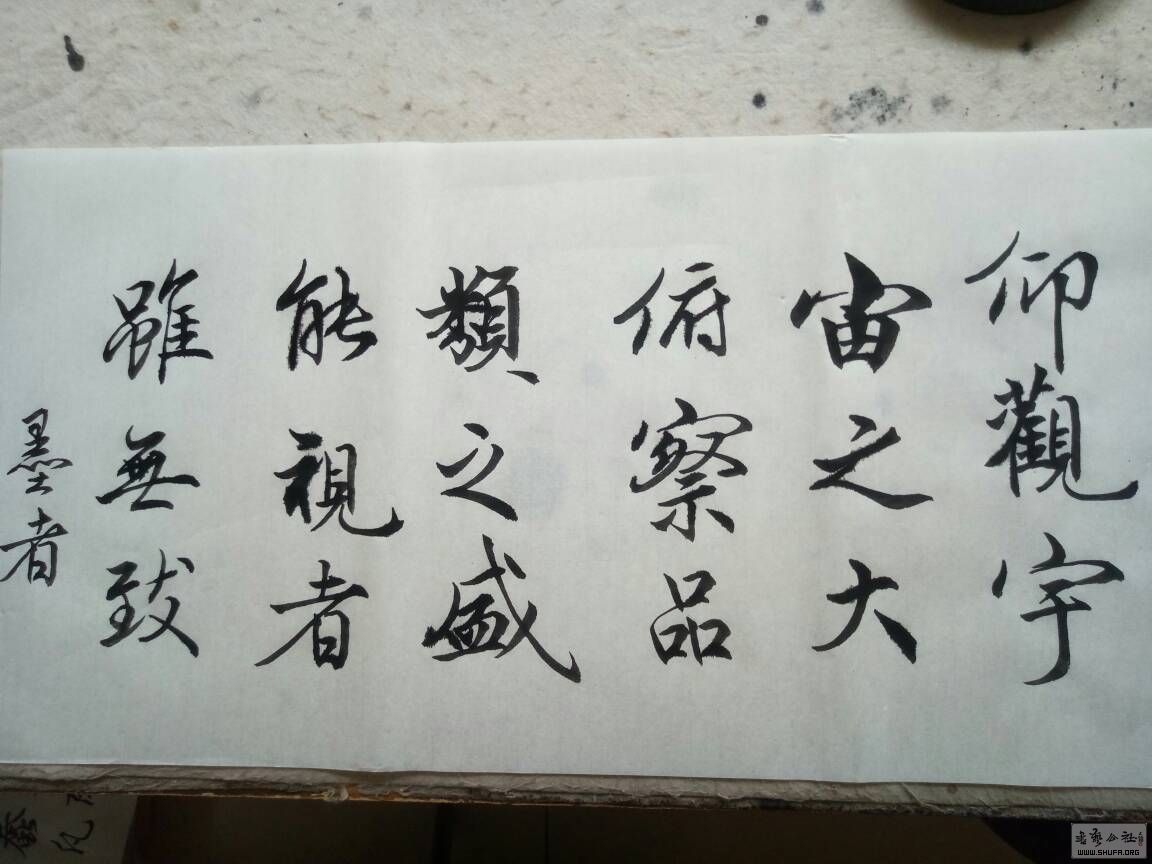 仰觀宇
宙之大
俯察品
類之盛
能視者
雖無致
墨者
WWW.SHUFA.ORG